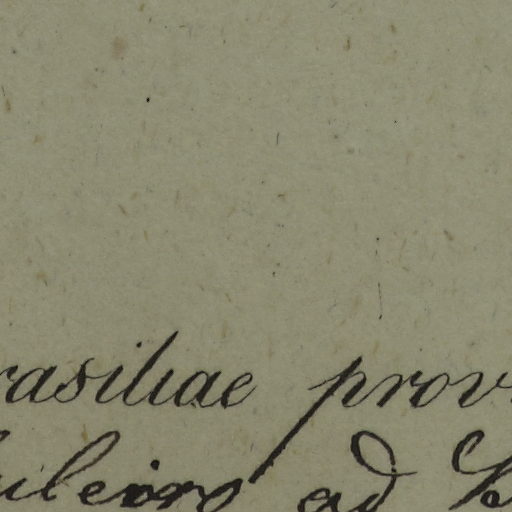 rasiliae prov
uleiro ad S